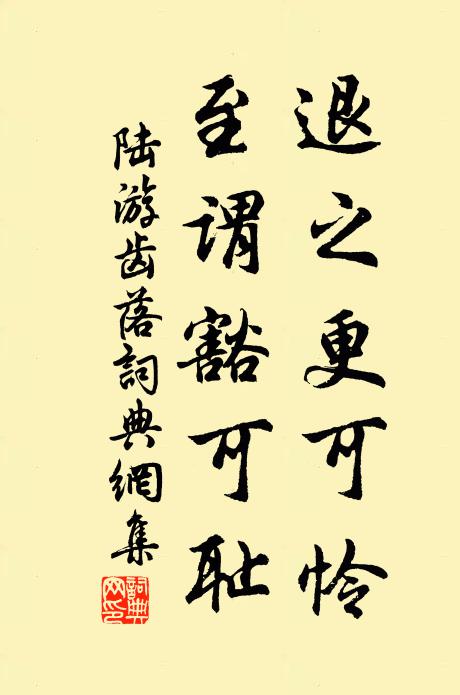 退之更可怜
至谓豁可耻
陆游齿落詞典網集
詞典网印